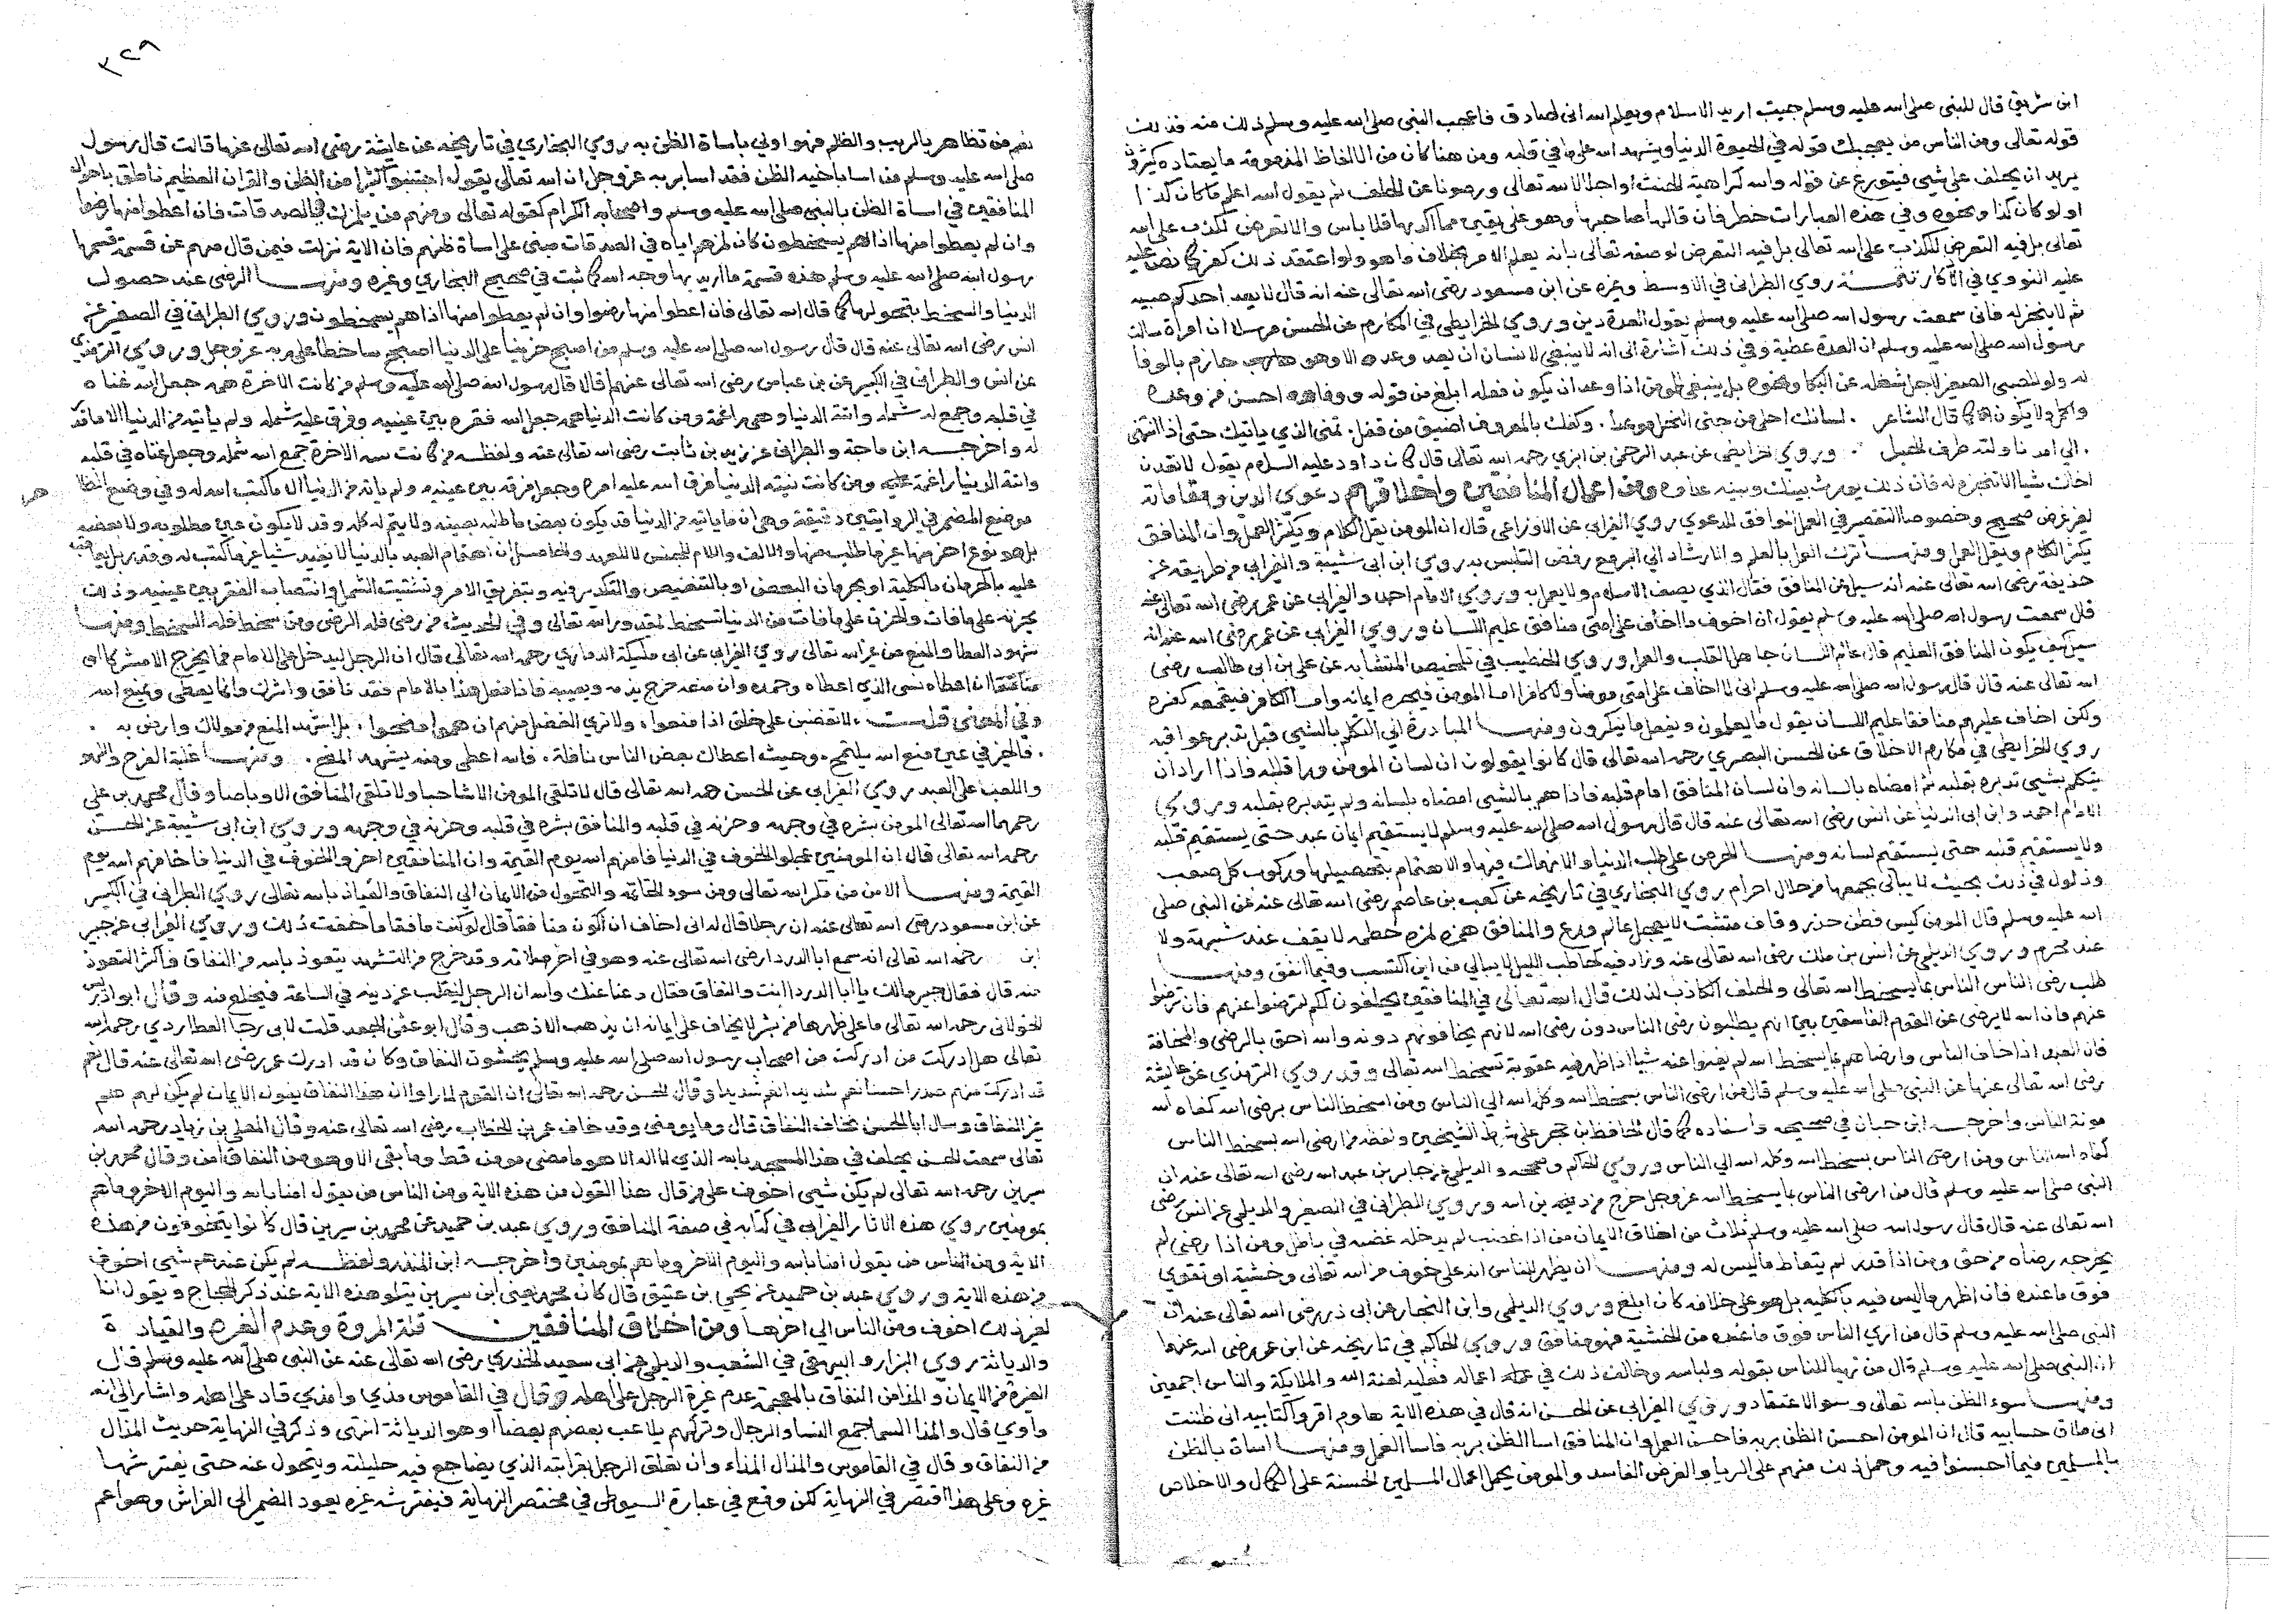 ابن شريق قال للنبي صلى الله عليه وسلم جيت اريد الاسلام ويعلم الله اني لصادق فاعجب النبي صلى الله عليه وسلم ذلك منه فذلك
قوله تعالى ومن الناس من يعجبك قوله في الحيوة الدنيا ويشهد الله على ما في قلبه ومن هنا كان من الالفاظ المذمومة ما يعتاده كثيرون
يريد ان يحلف على شيي فيتورع عن قوله والله كراهية الحنث او اجلالا لله تعالى وصونا عن الحلف ثم يقول الله اعلم ما كان كذا
او لو كان كذا ونحوه وفي هذه العبارات خطر فان قالها صاحبها وهو على يقين مما اكد بها فلا باس والا تعرض لكذب على الله
تعالى بل فيه التعرض للكذب على الله تعالى بل فيه التعرض لوصفه تعالى بانه يعلم الامر بخلاف ما هو ولو اعتقد ذلك كفر كما نص عليه
عليه النووي في الاذكار تتمة روي الطبراني في الاوسط وغيره عن ابن مسعود رضي الله تعالى عنه انه قال لا يعد احدكم صبيه
ثم لا ينجز له فاني سمعت رسول الله صلى الله عليه وسلم يقول العدة دين وروي الخرايطي في المكارم عن الحسن مرسلا ان امراة سالت
رسول الله صلى الله عليه وسلم ان العدة عطية وفي ذلك اشارة الى انه لا ينبغي لانسان ان يعد وعده الا وهو جازم بالوفا
له ولو للصبي الصغير لاجل شغله عن البكا ونحوه بل ينبغي للمومن اذا وعد ان يكون فعله ابلغ من قوله ووفاوه احسن من وعده
ولا يكون كما قال الشاعر . لسانك احلى من جنى النحل موعدا . وكفك بالمعروف اضيق من قفل . تمني الذي ياتيك حتى اذا انتهى
. الى امد ناولته طرف الحبل . وروي الخرايطي عن عبد الرحمن بن ابزي رحمه الله تعالى قال كان داود عليه السلام يقول لا تعدن
اخاك شيا لا تنجزه له فان ذلك يورث بينك وبينه عداوة ومن اعمال المنافقين واخلاقهم دعوي الدين ومقاماته
لغير غرض صحيح وخصوصا التقصير في العمل الموافق للدعوي روي الفريابي عن الاوزاعي قال ان المومن يقل الكلام ويكثر العمل وان المنافق
يكثر الكلام ويقل العمل ومنها ترك العمل بالعلم والارشاد الى البر مع رفض التلبس به روي ابن ابي شيبة والفريابي من طريقه عن
حذيفة رضي الله تعالى عنه انه سيل عن المنافق فقال الذي يصف الاسلام ولا يعمل به وروي الامام احمد والفريابي عن عمر رضي الله تعالى عنه
قال سمعت رسول الله صلى الله عليه وسلم يقول ان اخوف ما اخاف على امتي منافق عليم اللسان وروي الفريابي عن عمر رضي الله عنه انه
سيل كيف يكون المنافق العليم قال عالم اللسان جاهل القلب والعمل وروي الخطيب في تلخيص المتشابه عن علي بن ابي طالب رضي
الله تعالى عنه قال قال رسول الله صلى الله عليه وسلم اني لا اخاف على امتي مومنا ولا كافرا اما المومن فيحجره ايمانه واما الكافر فيقمعه كفره
ولكن اخاف عليهم منافقا عليم اللسان يقول ما يعلمون ويفعل ما ينكرون ومنها المبادرة الى التكلم بالشيي قبل تدبر عواقبه
روي الخرايطي في مكارم الاخلاق عن الحسن البصري رحمه الله تعالى قال كانوا يقولون ان لسان المومن ورا قلبه فاذا اراد ان
يتكلم بشيي تدبره بقلبه ثم امضاه بلسانه وان لسان المنافق امام قلبه فاذا هم بالشيي امضاه بلسانه ولم يتدبره بقلبه وروي
الامام احمد وابن ابي الدنيا عن انس رضي الله تعالى عنه قال قال رسول الله صلى الله عليه وسلم لا يستقيم ايمان عبد حتى يستقيم قلبه
ولا يستقيم قلبه حتى يستقيم لسانه ومنها الحرص على طلب الدنيا والانهماك فيها والاهتمام بتحصيلها وركوب كل صعب
وذلول في ذلك بحيث لا يبالي بجمعها من حلال او حرام روي البخاري في تاريخه عن كعب بن عاصم رضي الله تعالى عنه عن النبي صلى
الله عليه وسلم قال المومن كيس فطن حذر وقاف متثبت لا يعجل عالم ورع والمنافق همزة لمزة حطمة لا يقف عند شبهة ولا
عند محرم وروي الديلمي عن انس بن ملك رضي الله تعالى عنه وزاد فيه كحاطب الليل لا يبالي من اين اكتسب وفيما انفق ومنها
طلب رضي الناس بما يسخط الله تعالى والحلف الكاذب لذلك قال الله تعالى في المنافقين يحلفون لكم لترضوا عنهم فان ترضوا
عنهم فان الله لا يرضى عن القوم الفاسقين بين انهم يطلبون رضي الناس دون رضي الله لانهم يخافونهم دونه والله احق بالرضي والمخافة
فان العبد اذا خاف الناس وارضاهم بما يسخط الله لم يغنوا عنه شيا اذا ظهر فيه عقوبة تسخط الله تعالى وقد روي الترمذي عن عايشة
رضي الله تعالى عنها عن النبي صلى الله عليه وسلم قال من ارضى الناس بسخط الله وكله الله الى الناس ومن اسخط الناس برضي الله كفاه الله
مونة الناس واخرجه ابن حبان في صحيحه واسناده كما قال الحافظ بن حجر على شرط الشيخين ولفظه من ارضى الله بسخط الناس
كفاه الله الناس ومن ارضى الناس بسخط الله وكله الله الى الناس وروي الحاكم وصححه والديلمي عن جابر بن عبد الله رضي الله تعالى عنه ان
النبي صلى الله عليه وسلم قال من ارضى الناس بما يسخط الله عز وجل خرج من دين الله وروي الطبراني في الصغير والديلمي عن انس رضي
الله تعالى عنه قال قال رسول الله صلى الله عليه وسلم ثلاث من اخلاق الايمان من اذا غضب لم يدخله غضبه في باطل ومن اذا رضي لم
يخرجه رضاه من حق ومن اذا قدر لم يتعاط ما ليس له ومنها ان يظهر للناس انه على خوف من الله تعالى وخشية او تقوي
فوق ما عنده فان اظهر ما ليس فيه بالكلية بل هو على خلافه كان ابلغ وروي الديلمي وابن النجار عن ابي ذر رضي الله تعالى عنه ان
النبي صلى الله عليه وسلم قال من اري الناس فوق ما عنده من الخشية فهو منافق وروي الحاكم في تاريخه عن ابن عمر رضي الله عنهما
ان النبي صلى الله عليه وسلم قال من تزيا للناس بقوله ولباسه وخالف ذلك في اعماله فعليه لعنة الله والملايكة والناس اجمعين
ومنها سوء الظن بالله تعالى وسو الاعتقاد وروي الفريابي عن الحسن انه قال في هذه الاية هاوم اقروا كتابيه اني ظننت
اني ملاق حسابيه قال ان المومن احسن الظن بربه فاحسن العمل وان المنافق اسا الظن بربه فاسا العمل ومنها اساة بالظن
بالمسلمين فيما احسنوا فيه وحمل ذلك منهم على الريا والغرض الفاسد والمومن يحمل اعمال المسلمين الحسنة على الكمال والاخلاص
٣٢٩
نعم من تظاهر بالريب والظلم فهو اولي باساة الظن به روي البخاري في تاريخه عن عايشة رضي الله تعالى عنها قالت قال رسول
صلى الله عليه وسلم من اسا باخيه الظن فقد اسا بربه عز وجل ان الله تعالى يقول اجتنبوا كثيرا من الظن والقران العظيم ناطق باحوال
المنافقين في اساة الظن بالنبي صلى الله عليه وسلم واصحابه الكرام كقوله تعالى ومنهم من يلمزك في الصدقات فان اعطوا منها رضوا
وان لم يعطوا منها اذا هم يسخطون كان لمزهم اياه في الصدقات مبني على اساة ظنهم فان الاية نزلت فيمن قال منهم عن قسمة قسمها
رسول الله صلى الله عليه وسلم هذه قسمة ما اريد بها وجه الله كما ثبت في صحيح البخاري وغيره ومنها الرضى عند حصول
الدنيا والسخط بتحولها كما قال الله تعالى فان اعطوا منها رضوا وان لم يعطوا منها اذا هم يسخطون وروي الطبراني في الصغير عن
انس رضي الله تعالى عنه قال قال رسول الله صلى الله عليه وسلم من اصبح حزينا على الدنيا اصبح ساخطا على ربه عز وجل وروي الترمذي
عن انس والطبراني في الكبير عن بن عباس رضي الله تعالى عنهم قالا قال رسول الله صلى الله عليه وسلم من كانت الاخرة همه جعل الله غناه
في قلبه وجمع له شمله واتته الدنيا وهي راغمة ومن كانت الدنيا همه جعل الله فقره بين عينيه وفرق عليه شمله ولم ياته من الدنيا الا ما قدر
له واخرجه ابن ماجة والطبراني عن زيد بن ثابت رضي الله تعالى عنه ولفظه من كانت نيته الاخرة جمع الله شمله وجعل غناه في قلبه
واتته الدنيا راغمة ومن كانت نيته الدنيا فرق الله عليه امره وجعل فقره بين عينيه ولم ياته من الدنيا الا ما كتب الله له وفي وضع الظاهر
موضع المضمر في الروايتين دقيقة وهي ان ما ياتيه من الدنيا قد يكون بعض ما طلبه بعينه ولا يتم له كله وقد لا يكون عين مطلوبه ولا بعضه
بل هو نوع اخر منها غير ما طلب منها والالف واللام للجنس لا للعهد والحاصل ان اهتمام العبد بالدنيا لا يفيد شيا غير ما كتب له وقدر بل
عليه بالحرمان بالكلية او بحرمان البعض او بالتنغيص والتكدير فيه وبتفريق الامر وتشتيت الشمل وانتصاب الفقر بين عينيه وذلك
حزنه على ما فات والحزن على ما فات من الدنيا تسخط لمقدور الله تعالى وفي الحديث من رضي فله الرضى ومن سخط فله السخط ومنها
شهود العطا والمنع من غير الله تعالى روي الفريابي عن ابي مليكة الذماري رحمه الله تعالى قال ان الرجل ليدخل على الامام فما يخرج الا مشركا او
منافقا ان اعطاه نسى الذي اعطاه وحمده وان منعه خرج يذمه ويعيبه فاذا فعل هذا بالامام فقد نافق واشرك وانما يعطي ويمنع الله
وفي المعنى قلت . لا تغضبن على خلق اذا منعوا . ولا تري الفضل منهم ان هموا منحوا . بل اشهد المنع من مولاك وارض به .
. فالخير في عين منع الله يلتمح . وحيث اعطاك بعض الناس نافلة . فالله اعطى ومنه يشهد المنح . ومنها غلبة الفرح واللهو
واللعب على العبد روي الفريابي عن الحسن رحمه الله تعالى قال لا تلقى المومن الا شاحبا ولا تلقى المنافق الا وباصا وقال محمد بن علي
رحمهما الله تعالى المومن بشره في وجهه وحزنه في قلبه والمنافق بشره في قلبه وحزنه في وجهه وروي ابن ابي شيبة عن الحسن
رحمه الله تعالى قال ان المومنين عجلوا الخوف في الدنيا فامنهم الله يوم القيمة وان المنافقين اخروا الخوف في الدنيا فاخافهم الله يوم
القيمة ومنها الامن من مكر الله تعالى ومن سوء الخاتمة والتحول من الايمان الى النفاق والعياذ بالله تعالى روي الطبراني في الكبير
عن ابن مسعود رضي الله تعالى عنه ان رجلا قال له اني اخاف ان اكون منافقا قال لو كنت منافقا ما خفت ذلك وروي الفريابي عن جبير
ابن رحمه الله تعالى انه سمع ابا الدرداء رضي الله تعالى عنه وهو في اخر صلاته وقد خرج من التشهد يتعوذ بالله من النفاق فاكثر التعوذ
منه قال فقال جبير مالك يا ابا الدرداء انت والنفاق فقال دعنا عنك والله ان الرجل لينقلب عن دينه في الساعة فيخلع منه وقال ابو ادريس
الخولاني رحمه الله تعالى ما على ظهرها من بشر لا يخاف على ايمانه ان يذهب الا ذهب وقال ابو عثمن الجعد قلت لابي رجا العطاردي رحمه الله
تعالى هل ادركت من ادركت من اصحاب رسول الله صلى الله عليه وسلم يخشون النفاق وكان قد ادرك عمر رضي الله تعالى عنه قال نعم
قد ادركت منهم صدرا حسنا نعم شديدا نعم شديدا وقال الحسن رحمه الله تعالى ان القوم لما راوا ان هذا النفاق يغول الايمان لم يكن لهم هم
غير النفاق وسال ابا الحسن يخاف النفاق قال وما يومني وقد خاف عمر بن الخطاب رضي الله تعالى عنه وقال المعلى بن زياد رحمه الله
تعالى سمعت الحسن يحلف في هذا المسجد بالله الذي لا اله الا هو ما مضى مومن قط وما بقي الا وهو من النفاق امن وقال محمد بن
سيرين رحمه الله تعالى لم يكن شيي اخوف على من قال هذا القول من هذه الاية ومن الناس من يقول امنا بالله واليوم الاخر وما هم
بمومنين روي هذه الاثار الفريابي في كتابه في صفة المنافق وروي عبد بن حميد عن محمد بن سيرين قال كانوا يتخوفون من هذه
الاية ومن الناس من يقول امنا بالله واليوم الاخر وما هم بمومنين واخرجه ابن المنذر ولفظه لم يكن عندهم شيي اخوف
من هذه الاية وروي عبد بن حميد عن يحيى بن عتيق قال كان محمد يعني ابن سيرين يتلو هذه الاية عند ذكر الحجاج ويقول انا
لغير ذلك اخوف ومن الناس الى اخرها ومن اخلاق المنافقين قلة المروة وعدم الغيرة والقيادة
والدياثة روي البزار والبيهقي في الشعب والديلمي عن ابي سعيد الخدري رضي الله تعالى عنه عن النبي صلى الله عليه وسلم قال
الغيرة من الايمان والمذا من النفاق بالمعجمة عدم غيرة الرجل على اهله وقال في القاموس مذي وامذي قاد على اهله واشار الى انه
واوي قال والمذا السما جمع النسا والرجال وتركهم يلاعب بعضهم بعضا وهو الدياثة انتهى وذكر في النهاية حديث المذال
من النفاق وقال في القاموس والمذال المذاء وان تقلق الرجل بقرابته الذي يضاجع فيه حليلته ويتحول عنه حتى يفترشها
غيره وعلى هذا اقتصر في النهاية لكن وقع في عبارة السيوطي في مختصر النهاية فيفترشه غيره يعود الضمير الى الفراش وهو اعم